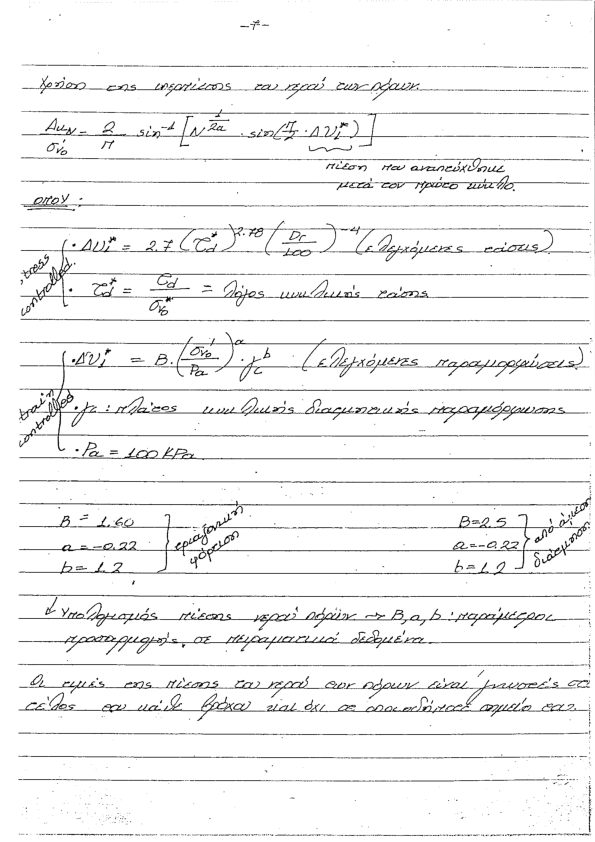 -7-
Χρήση της υπερπίεσης του νερού των πόρων.
Δu_N/σ'_vo = 2/π sin⁻¹ [N^(1/2a) · sin(π/2 · ΔU₁*)]
πίεση που αναπτύχθηκε
μετά τον πρώτο κύκλο.
όπου :
stress controlled.
· ΔU₁* = 2.7 (τ_d*)^2.78 (D_r/100)^-4 (ελεγχόμενες τάσεις)
· τ_d* = τ_d/σ_vo* = λόγος κυκλικής τάσης
strain controlled
· ΔU₁* = B · (σ'_vo/Pa)^a · γ_c^b (ελεγχόμενες παραμορφώσεις)
· γ_c : πλάτος κυκλικής διατμητικής παραμόρφωσης
· Pa = 100 KPa
B = 1.60 B = 2.5
a = -0.22 τριαξονική φόρτιση a = -0.22 από άμεση διάτμηση
b = 1.2 b = 1.2
Υπολογισμός πίεσης νερού πόρων → B, a, b : παράμετροι
προσαρμογής σε πειραματικά δεδομένα.
Οι τιμές της πίεσης του νερού των πόρων είναι γνωστές στο
τέλος του κάθε βρόχου και όχι σε οποιοδήποτε σημείο του.